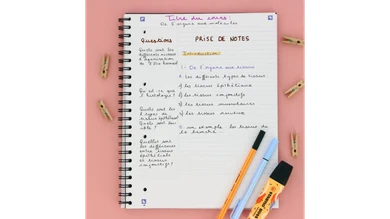 Titre du cours :
De l'organe aux molécules
Questions
PRISE DE NOTES
Quels sont les différents niveaux d'organisation de l'être humain ?
Introduction :
I - De l'organe aux tissus
1. Les différents types de tissus
a) Les tissus épithéliaux
Qu'est-ce que l'histologie ?
b) les tissus conjonctifs
c) les tissus musculaires
Quels sont les 4 types de tissus
d) les tissus nerveux
2. un exemple : les tissus de la
Quelles sont les différences entre tissu épithélial et tissu conjonctif ?